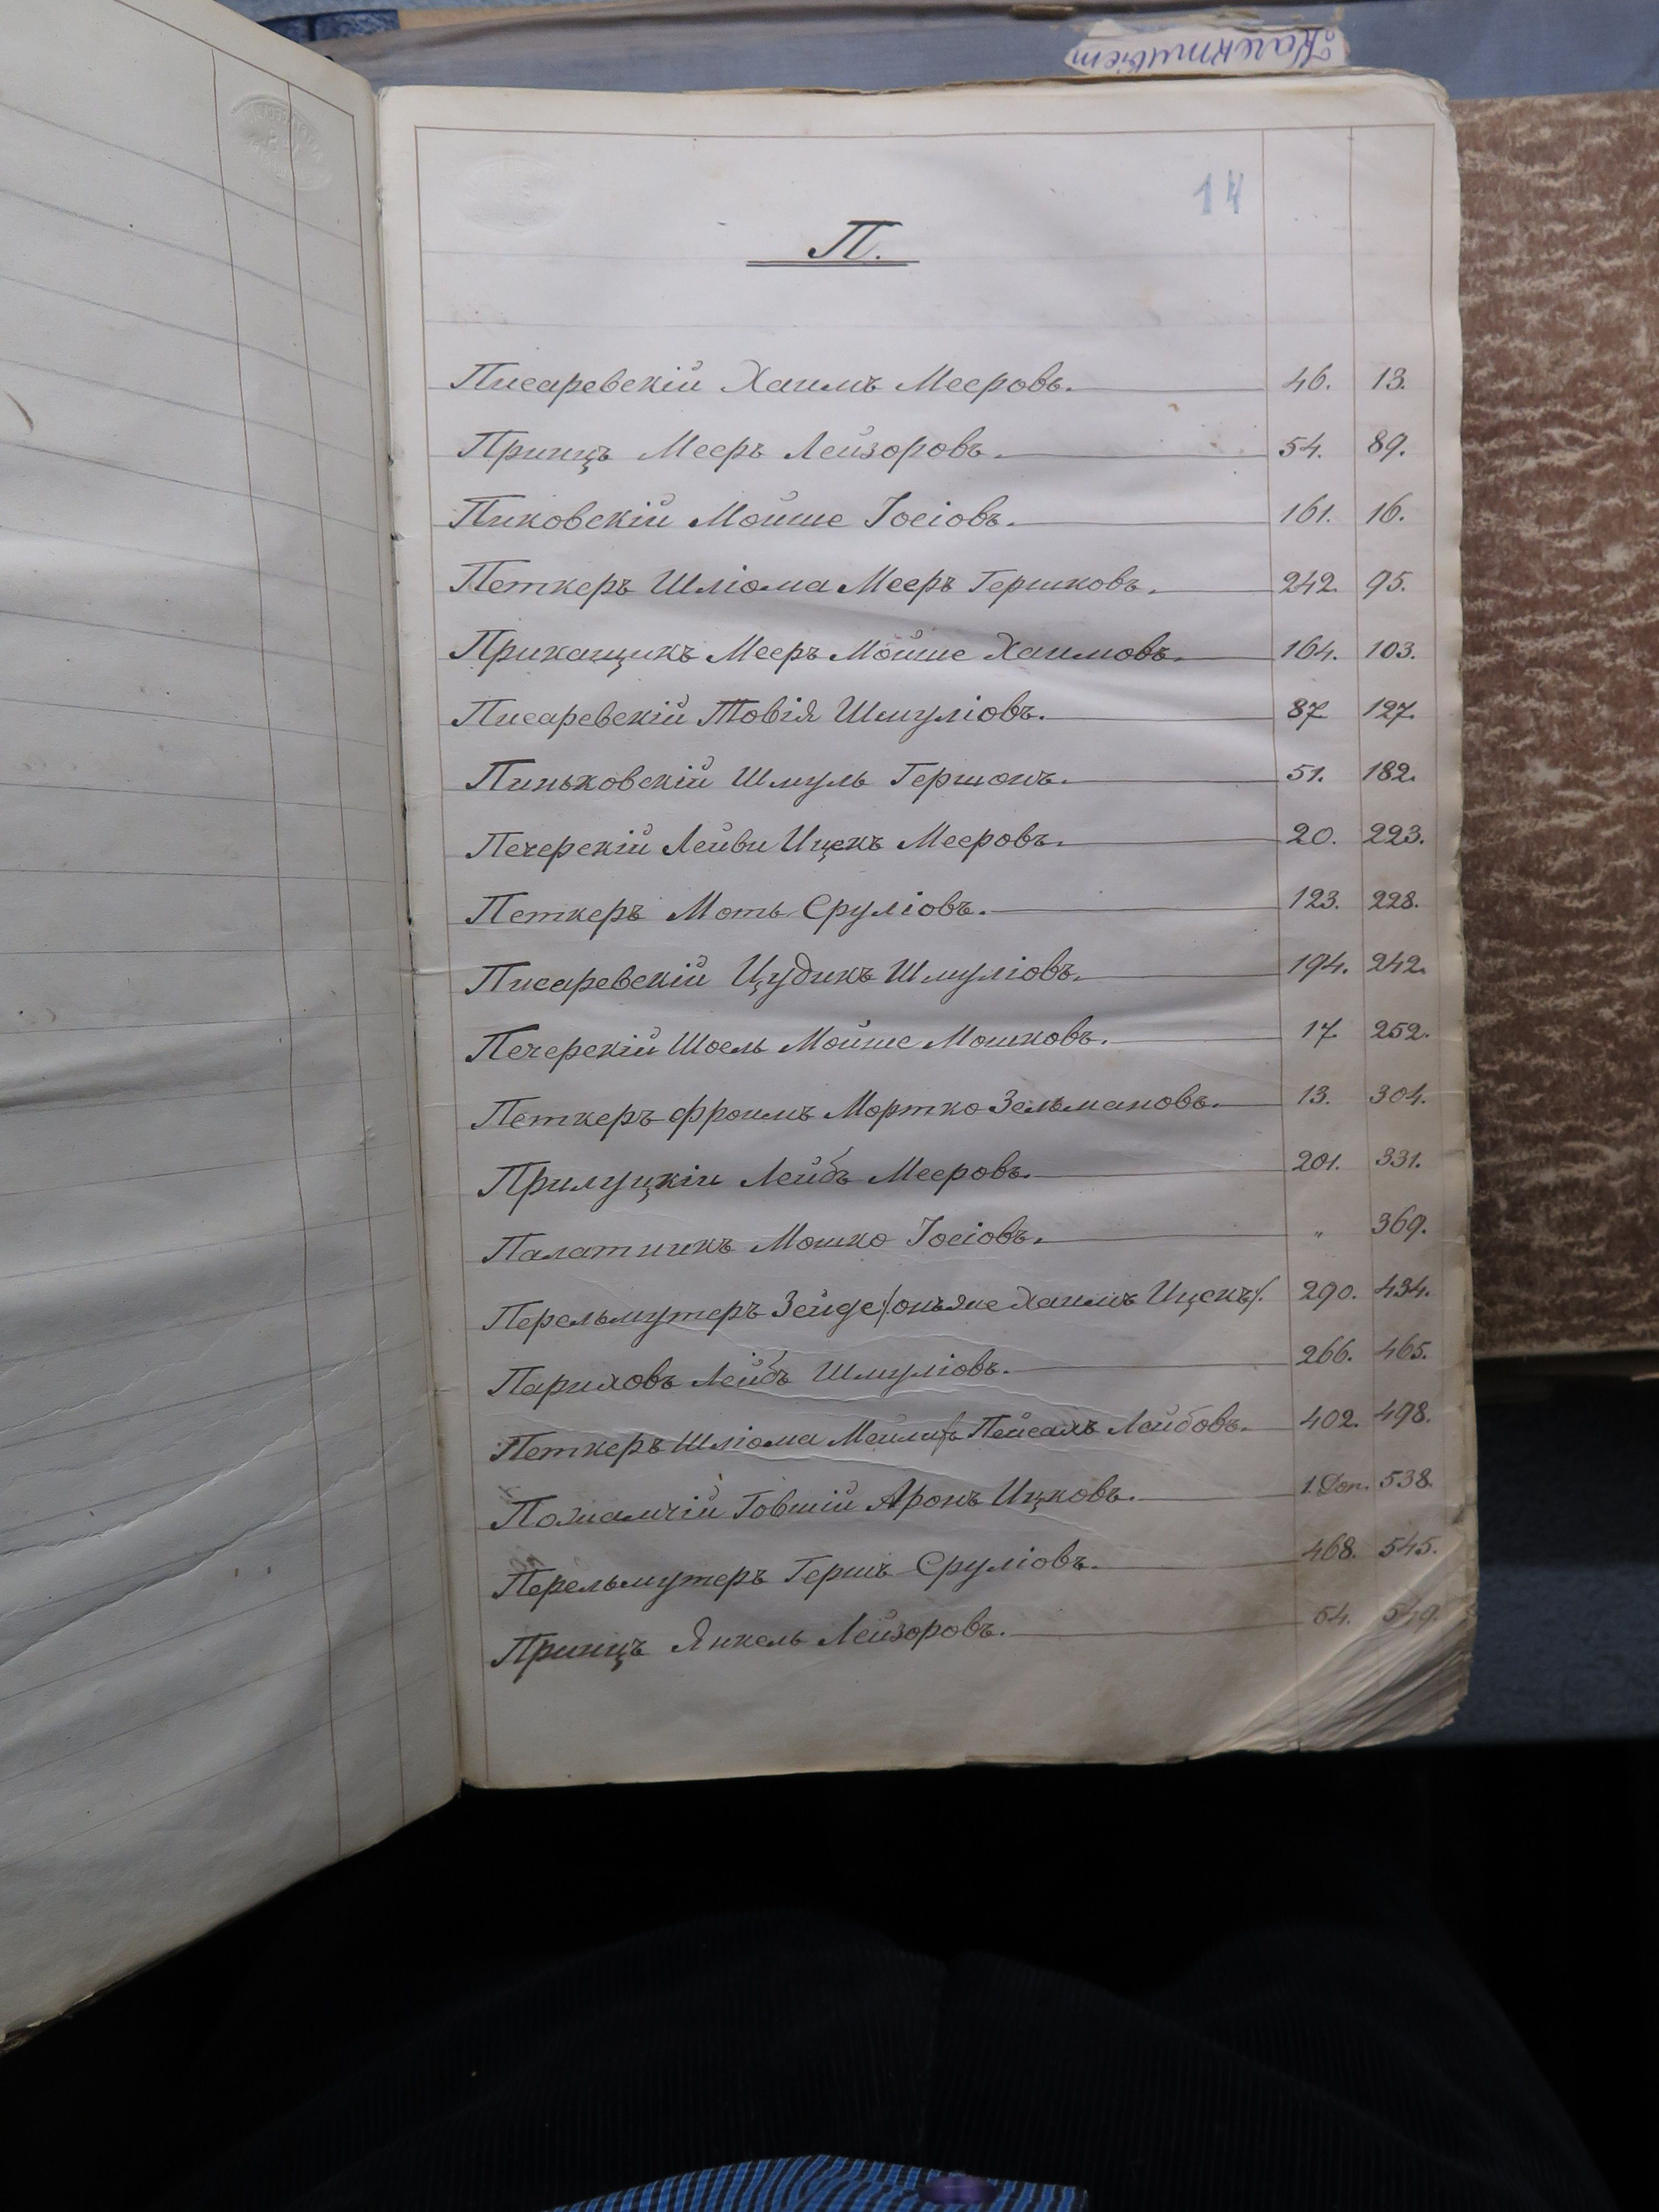 14
П.
Писаревскій Хаимъ Мееровъ. 46. 13.
Принцъ Мееръ Лейзоровъ. 54. 89.
Пиковскій Мойше Іосіовъ. 161. 16.
Петкеръ Шліома Мееръ Гершковъ. 242. 95.
Прикащикъ Мееръ Мойше Хаимовъ. 164. 103.
Писаревскій Товія Шмуліовъ. 87 127.
Пиньковскій Шмуль Гершонъ. 51. 182.
Печерскій Лейви Ицекъ Мееровъ. 20. 223.
Петкеръ Моть Сруліовъ. 123. 228.
Писаревскій Цудикъ Шмуліовъ. 194. 242.
Печерскій Шоель Мойше Мошковъ. 17 252.
Петкеръ Фроимъ Мортко Зельмановъ. 13. 304.
Прилуцкій Лейбъ Мееровъ. 201. 331.
Палатникъ Мошко Іосіовъ. " 369.
Перельмутеръ Зейде /:онъ же Хаимъ Ицекъ/. 290. 434.
Париховъ Лейбъ Шмуліовъ. 266. 465.
Петкеръ Шліома Пейсахъ Лейбовъ. 402. 498.
Аронъ Ицковъ. 1.Доп. 538.
Перельмутеръ Гершъ Сруліовъ. 468. 545.
Принцъ Янкель Лейзоровъ. 54. 549.